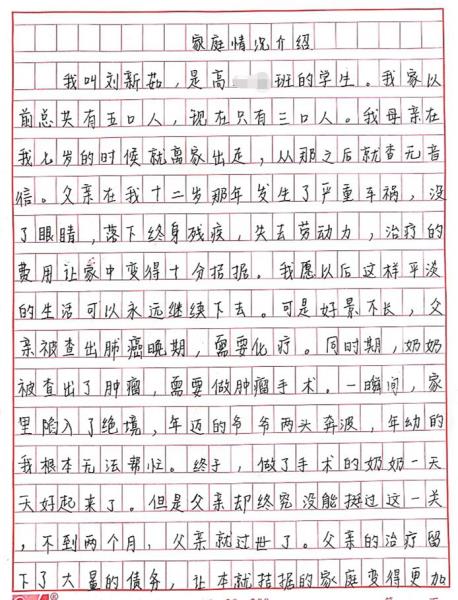 家庭情况介绍
我叫刘新茹，是高班的学生。我家以
前总共有五口人，现在只有三口人。我母亲在
我七岁的时候就离家出走，从那之后就杳无音
信。父亲在我十二岁那年发生了严重车祸，没
了眼睛，落下终身残疾，失去劳动力，治疗的
费用让家中变得十分拮据。我愿以后这样平淡
的生活可以永远继续下去。可是好景不长，父
亲被查出肺癌晚期，需要化疗。同时期，奶奶
被查出了肿瘤，需要做肿瘤手术。一瞬间，家
里陷入了绝境，年迈的爷爷两头奔波，年幼的
我根本无法帮忙。终于，做了手术的奶奶一天
天好起来了。但是父亲却终究没能挺过这一关
，不到两个月，父亲就过世了。父亲的治疗留
下了大量的债务，让本就拮据的家庭变得更加